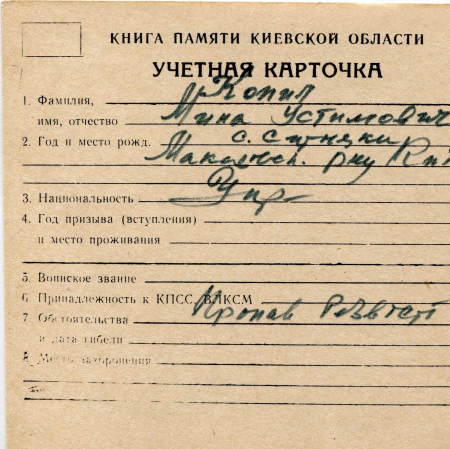 КНИГА ПАМЯТИ КИЕВСКОЙ ОБЛАСТИ
УЧЕТНАЯ КАРТОЧКА
1. Фамилия, Копил
имя, отчество Мина Устимович
2. Год и место рожд. с. Ситняки
Макаровск. р-ну
3. Национальность Укр
4. Год призыва (вступления)
и место проживания
5. Воинское звание
6. Принадлежность к КПСС, ВЛКСМ
7. Обстоятельства Пропав безвісті
и дата гибели
8. Место захоронения